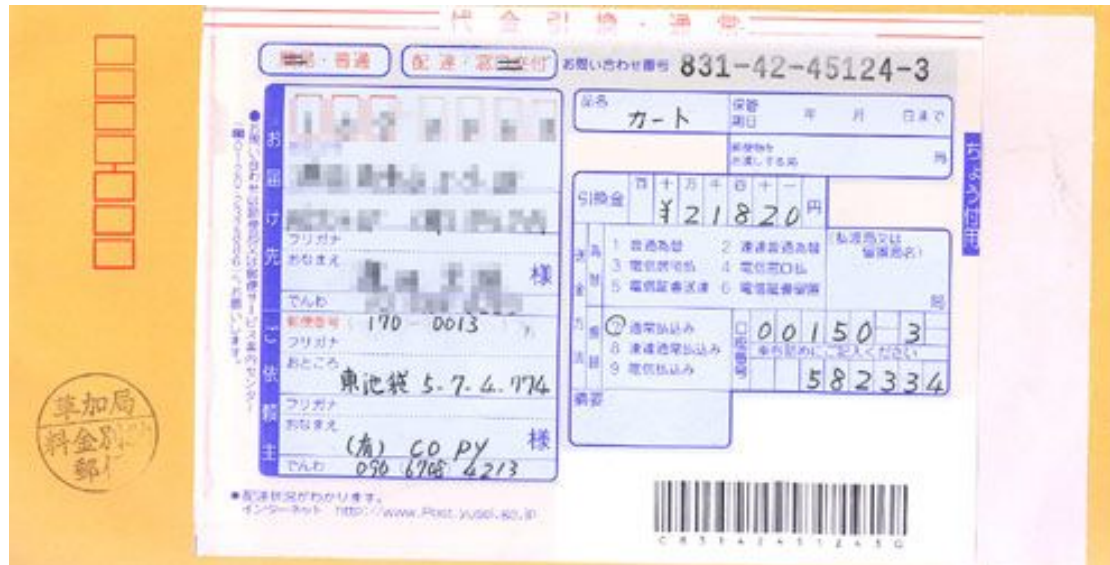 代金引換・通常
簡易・普通
配達・窓口交付
お問い合わせ番号 831-42-45124-3
お届け先
フリガナ
おなまえ
様
でんわ
郵便番号 (170-0013)
フリガナ
おところ
東池袋 5-7-4-774
フリガナ
おなまえ
(有) COPY 様
でんわ 090 6708 4213
ご依頼主
品名
カート
保管期日 年 月 日まで
郵便物をお渡しする局 局
引換金 百十万千百十一
¥21820円
送金方法
為替
1 普通為替 2 速達普通為替
3 電信居宅払 4 電信窓口払
5 電信証書送達 6 電信証書留置
局
振替
7 通常払込み
8 速達通常払込み
9 電信払込み
口座番号
00150-3
582334
摘要
ちょう付用
●配達状況がわかります。
インターネット http://www.Post.yusei.go.jp
草加局
料金別
郵